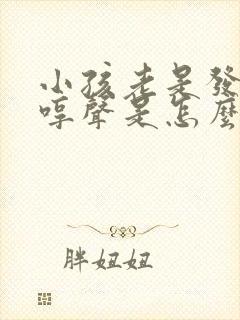 小孩老是發
哼聲是怎麼
胖妞妞